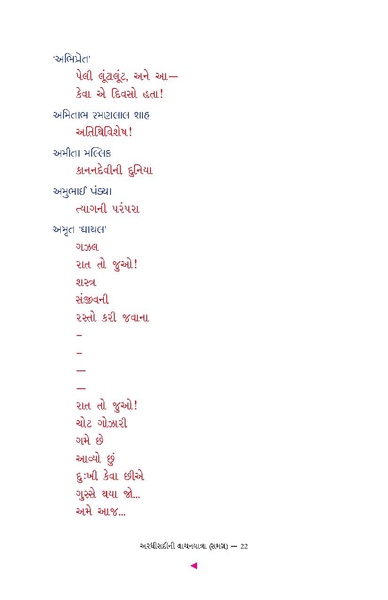 ‘અભિપ્રેત’
પેલી લૂંટાલૂંટ, અને આ—
કેવા એ દિવસો હતા!
અમિતાભ રમણલાલ શાહ
અતિથિવિશેષ!
અમીતા મલ્લિક
કાનનદેવીની દુનિયા
અમુભાઈ પંડ્યા
ત્યાગની પરંપરા
અમૃત ‘ઘાયલ’
ગઝલ
રાત તો જુઓ!
શસ્ત્ર
સંજીવની
રસ્તો કરી જવાના
–
–
—
—
રાત તો જુઓ!
ચોટ ગોઝારી
ગમે છે
આવ્યો છું
દુઃખી કેવા છીએ
ગુસ્સે થયા જો...
અમે આજ...
અરધીસદીની વાચનયાત્રા (સમગ્ર) — 22
◄